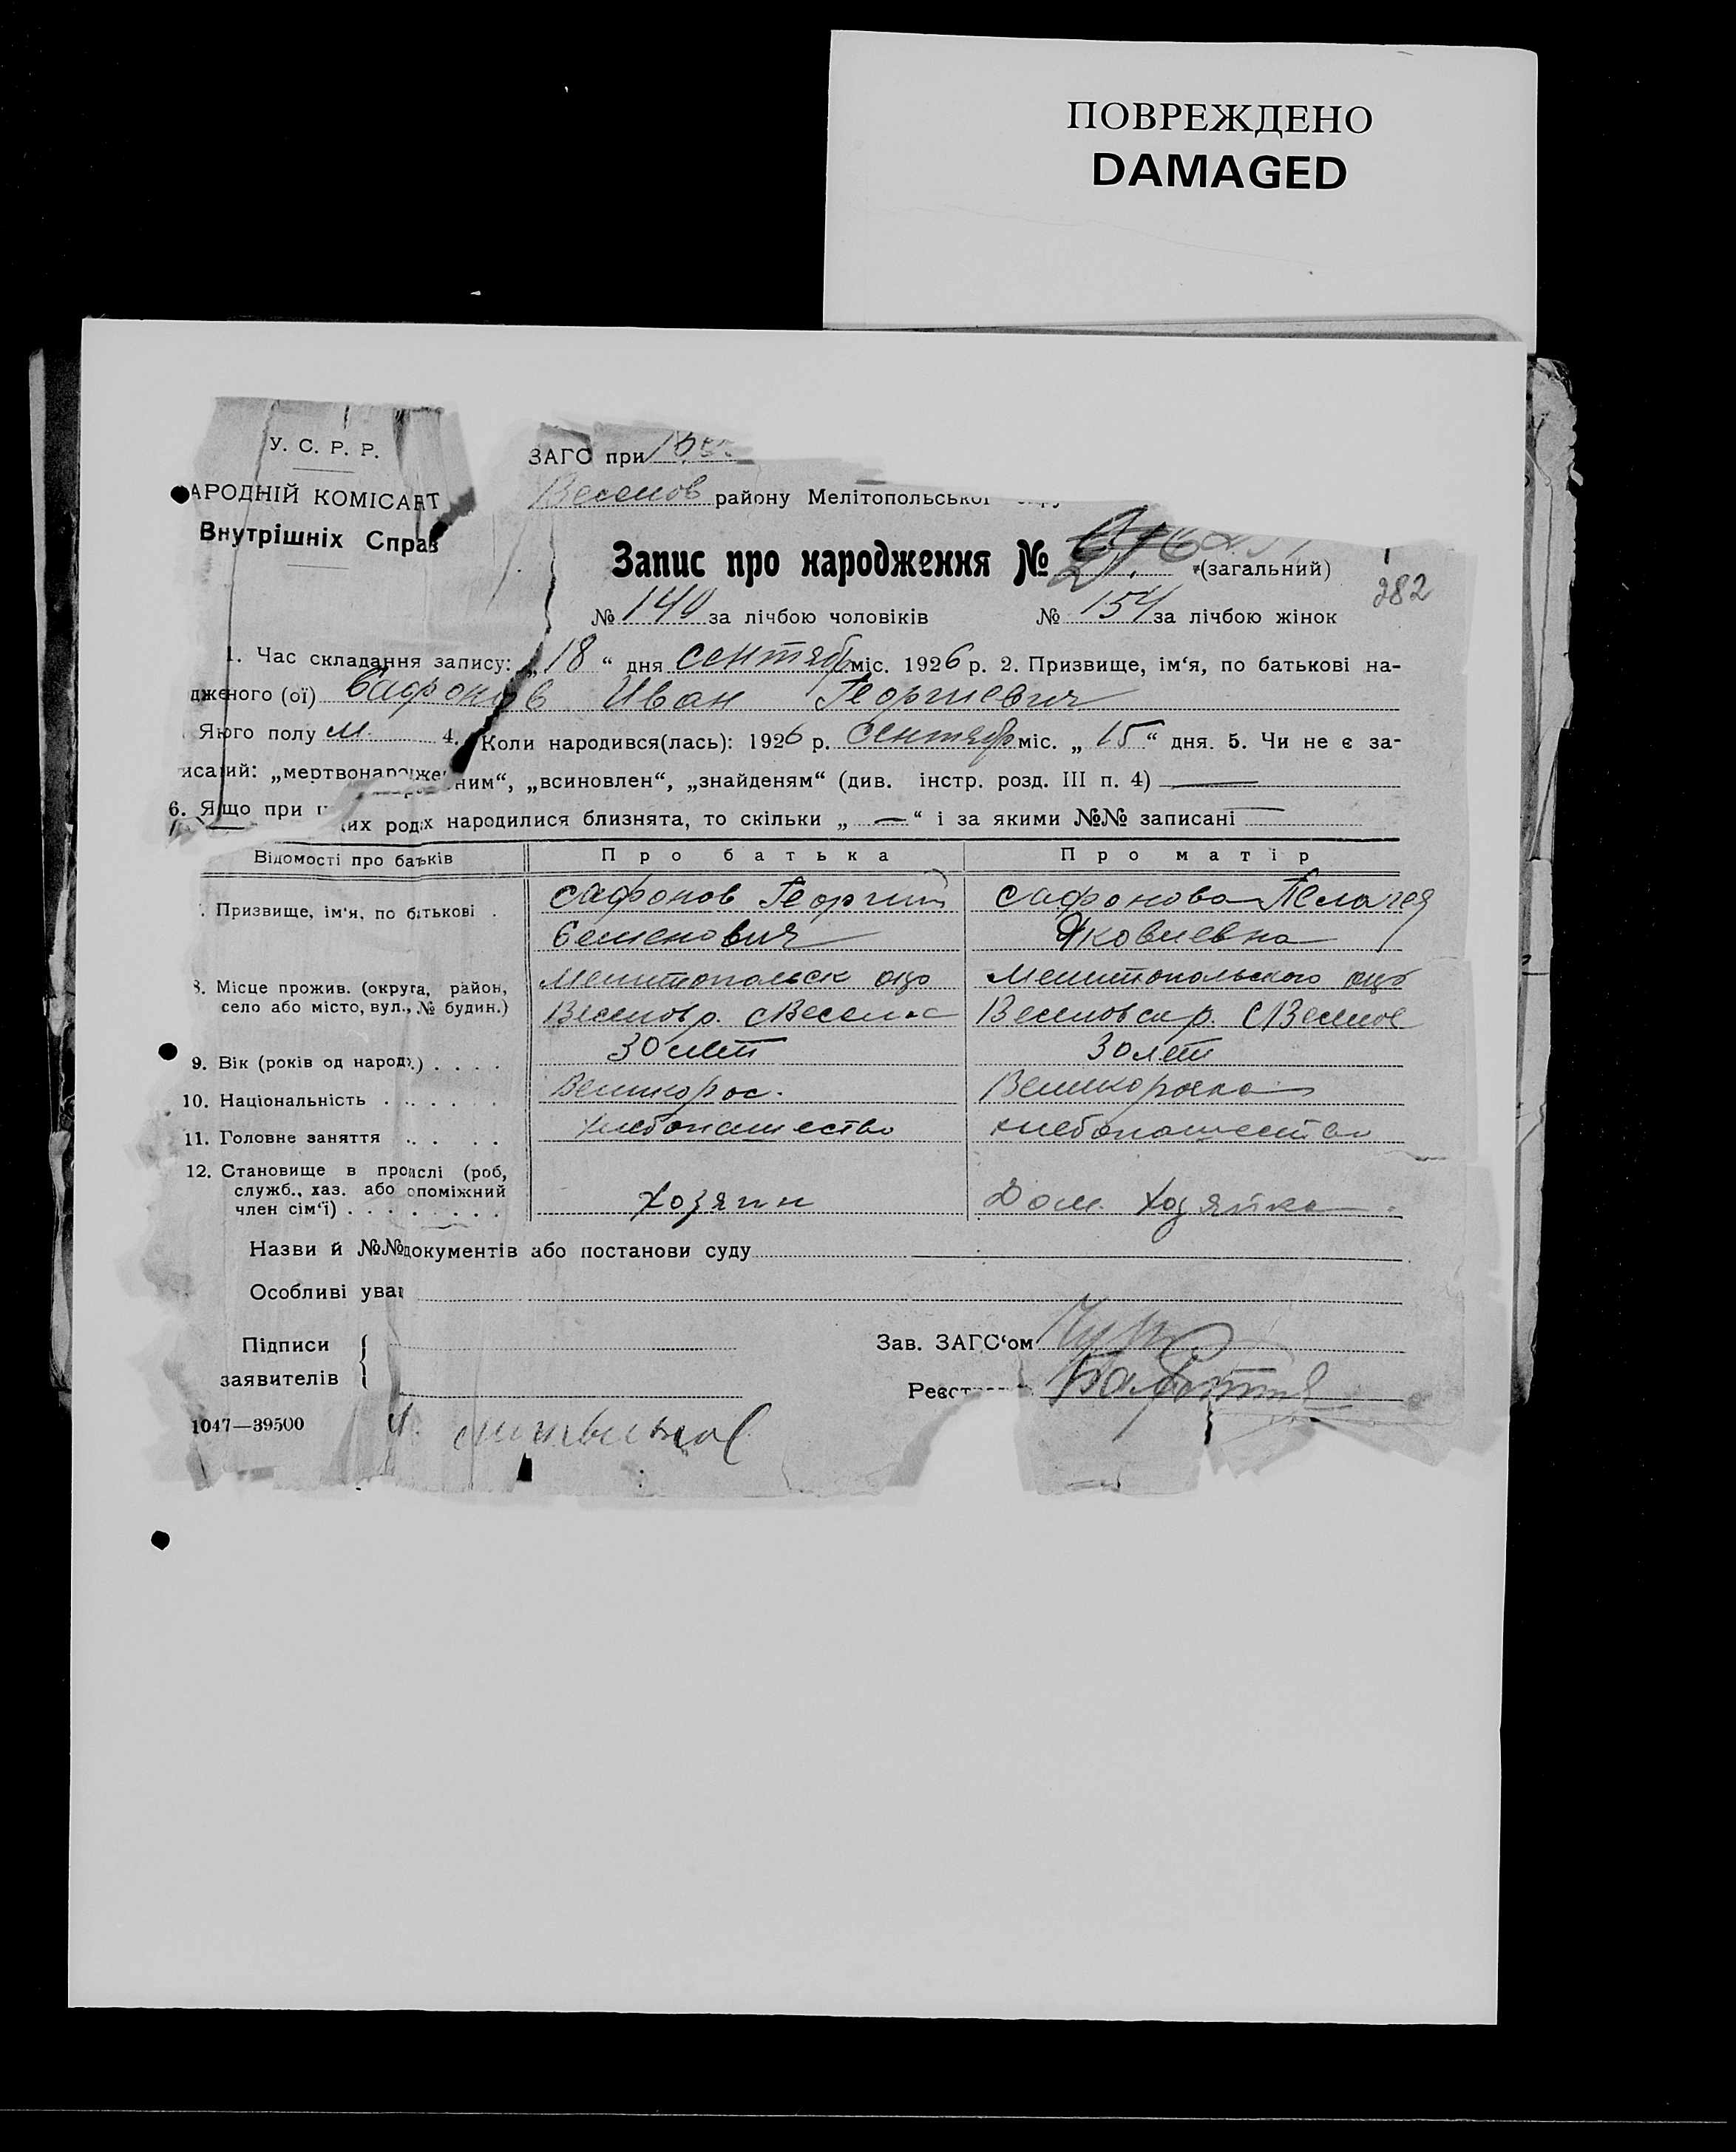 ПОВРЕЖДЕНО
DAMAGED
У. С. Р. Р.
АРОДНІЙ КОМІСАРТ
Внутрішніх Справ
ЗАГС при
Веселов району Мелітопольської
Запис про народження №
(загальний)
282
№ 140 за лічбою чоловіків № 154 за лічбою жінок
1. Час складання запису: „18“ дня сентябр міс. 1926 р. 2. Призвище, ім‘я, по батькові на-
дженого (ої) Сафонов Иван Георгиевич
Якого полу м. 4. Коли народився(лась): 1926 р. сентябр міс. „15“ дня. 5. Чи не є за-
писаний: „мертвонародженим“, „всиновлен“, „знайденям“ (див. інстр. розд. III п. 4) —
6. Якщо при цих родах народилися близнята, то скільки „—“ і за якими №№ записані —
Відомості про батьків Про батька Про матір
Призвище, ім‘я, по батькові . Сафонов Георгий Сафонова Пелагея
Семенович Яковлевна
8. Місце прожив. (округа, район, Мелитопольск окр Мелитопольского окр
село або місто, вул., № будин.) Веселов р. с Веселое Веселовск р. с Веселое
9. Вік (років од народж.) . . . . 30 лет 30 лет
10. Національність . . . . . . Великорос. Великороска
11. Головне заняття . . . . хлебопашество хлебопашество
12. Становище в промислі (роб,
служб., хаз. або допоміжний
член сім‘ї) . . . . . . . . Хозяин Дом. хозяйка
Назви й №№ документів або постанови суду
Особливі уваг
Підписи
заявителів
Зав. ЗАГС‘ом
Реєст
1047—39500